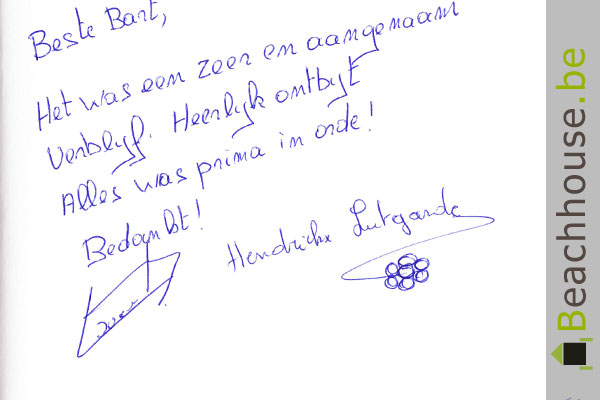 Beste Bart,
Het was een zeer en aangenaam
verblijf. Heerlijk ontbijt
Alles was prima in orde!
Bedankt!
Hendrickx Lutgarde
Beachhouse.be